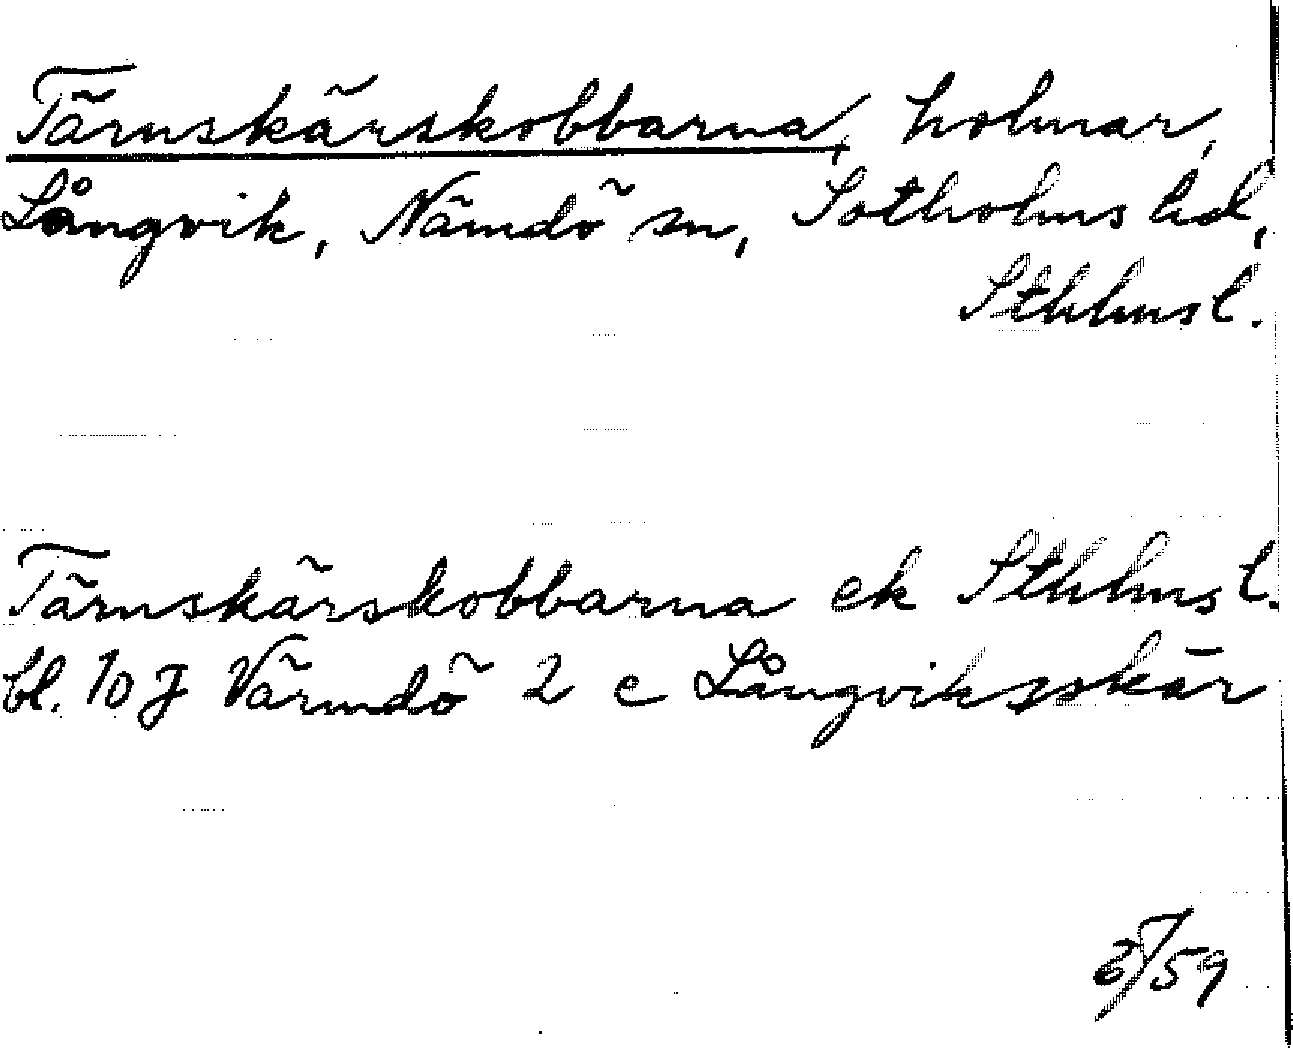 Tärnskärskobbarna, holmar,
Långvik, Nämdö sn, Sotholms hd,
Sthlmsl.
Tärnskärskobbarna ek Sthlmsl.
bl. 10 J Värmdö 2 c Långviksskär